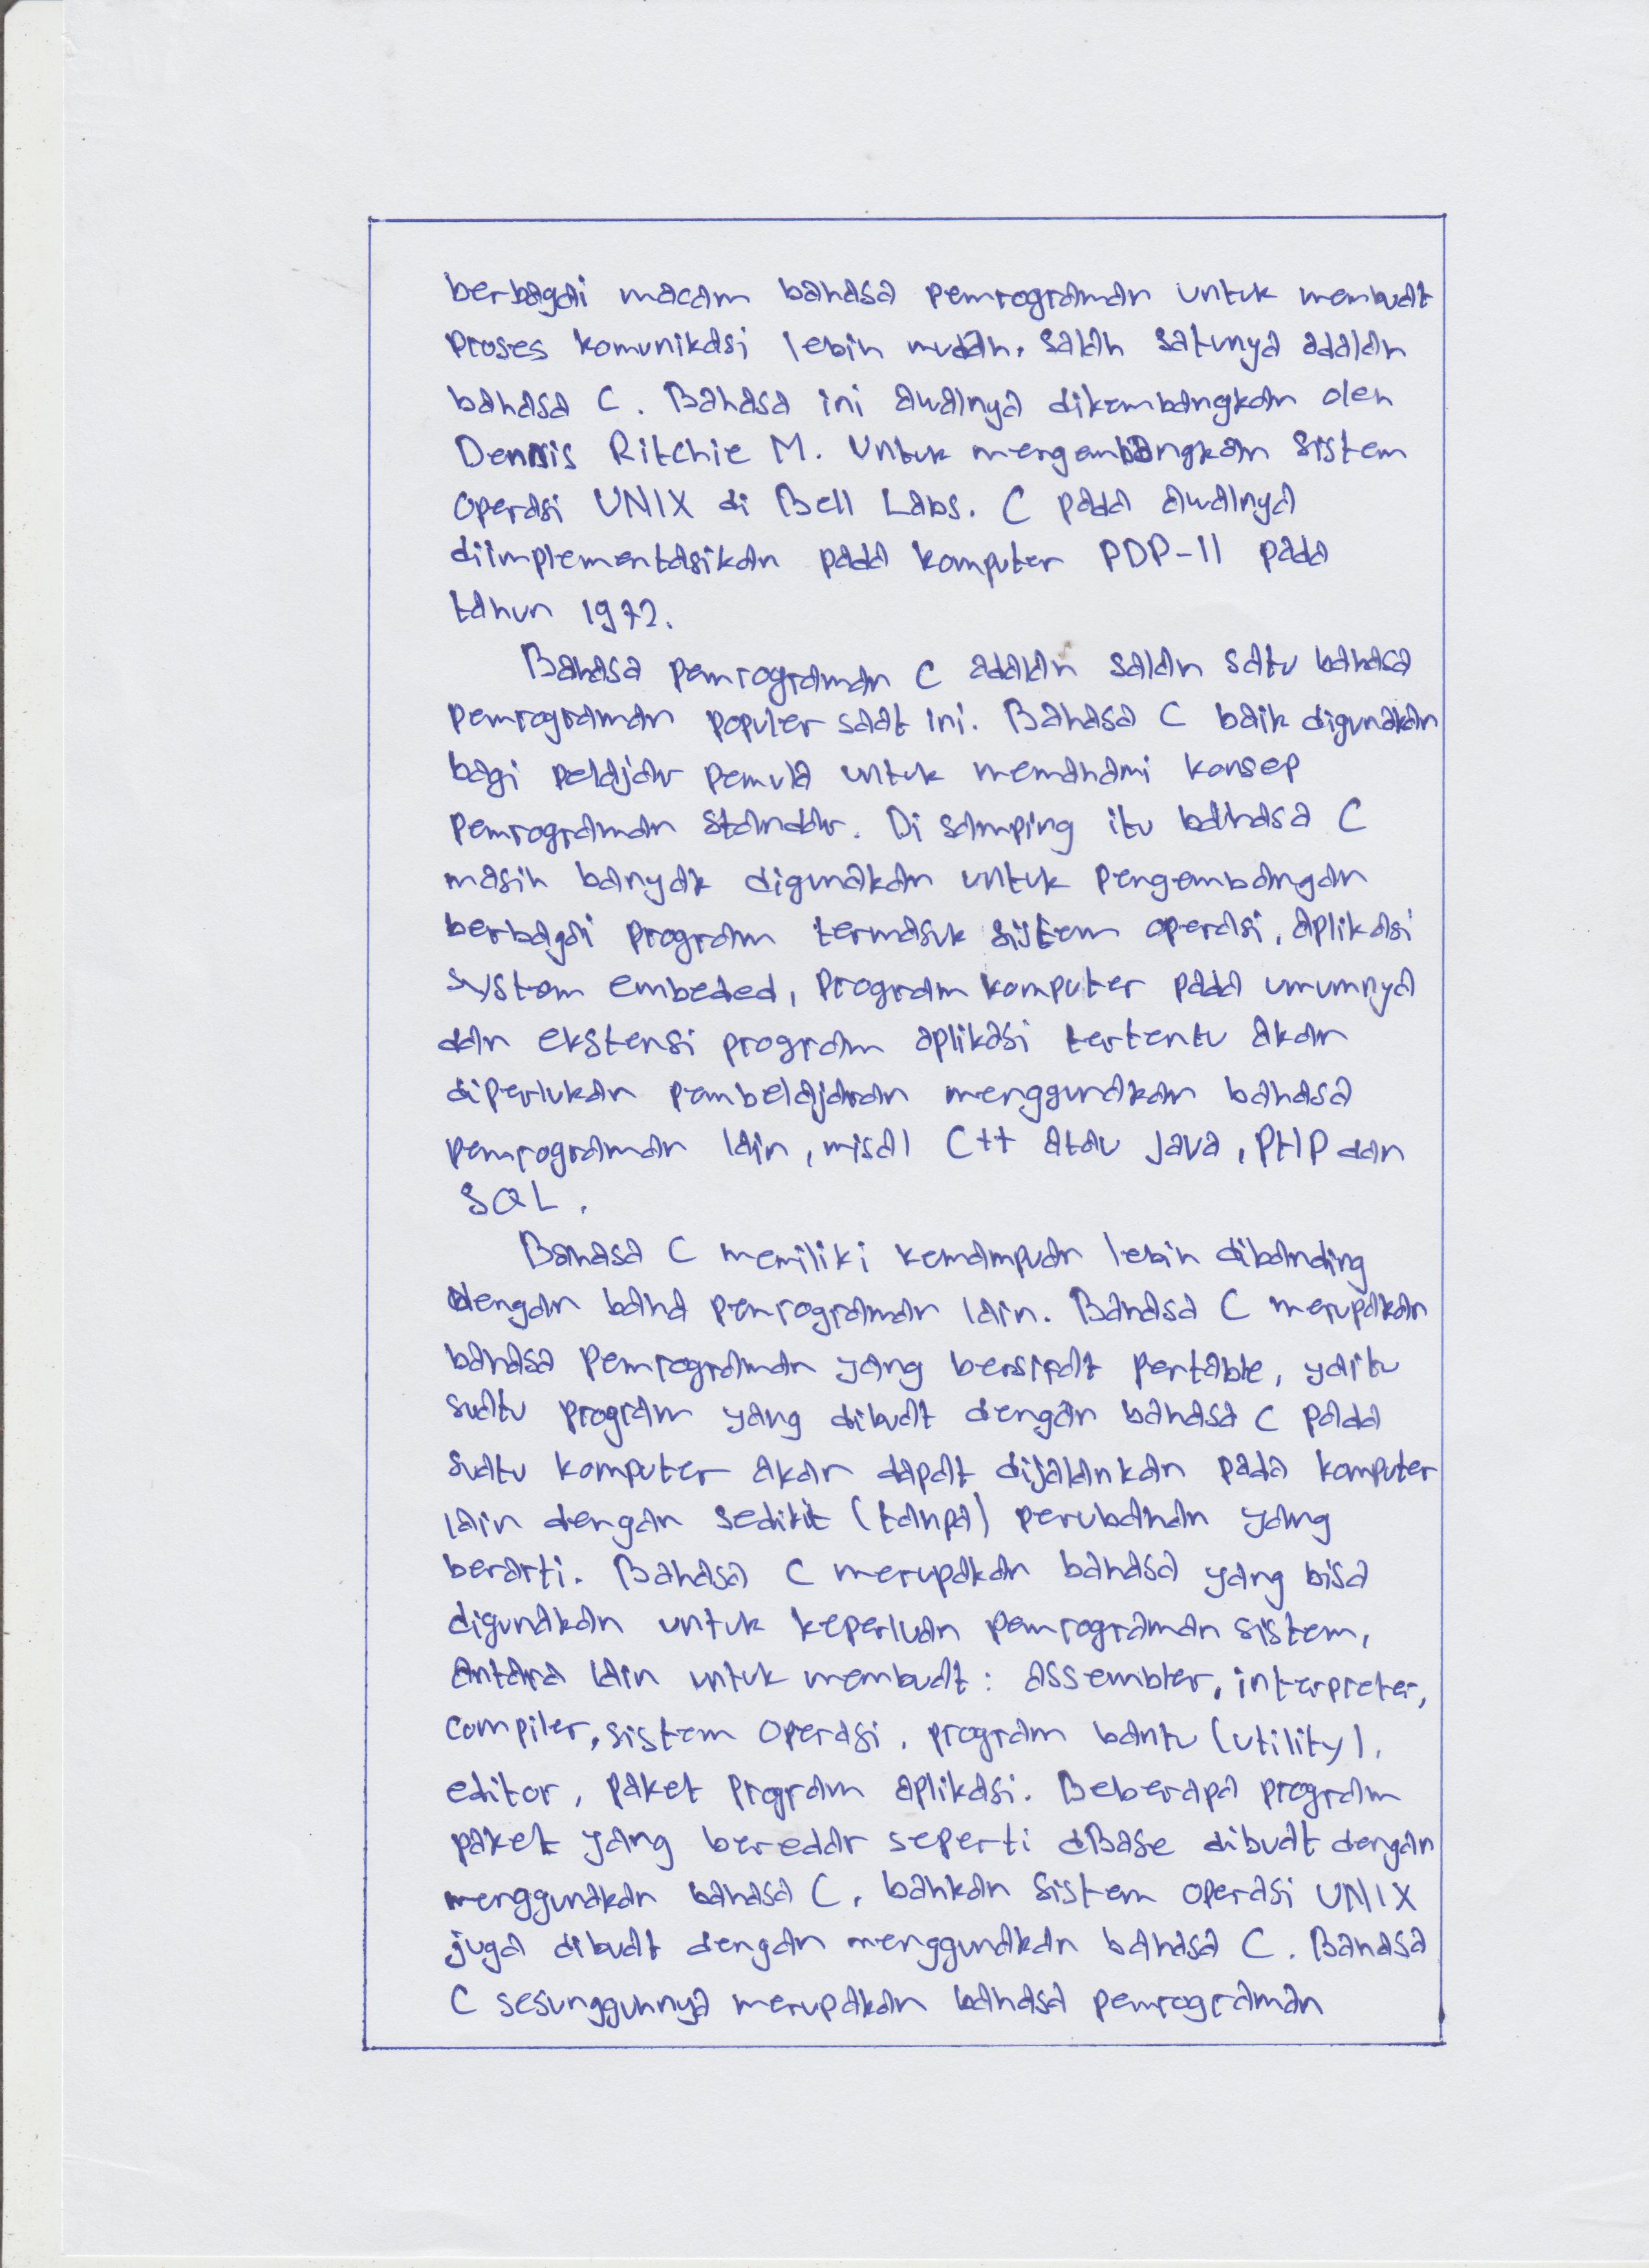 berbagai macam bahasa pemrograman untuk membuat
proses komunikasi lebih mudah. Salah satunya adalah
bahasa C. Bahasa ini awalnya dikembangkan oleh
Dennis Ritchie M. Untuk mengembangkan sistem
operasi UNIX di Bell Labs. C pada awalnya
diimplementasikan pada komputer PDP-11 pada
tahun 1972.
Bahasa pemrograman C adalah salah satu bahasa
pemrograman populer saat ini. Bahasa C baik digunakan
bagi pelajar pemula untuk memahami konsep
pemrograman standar. Di samping itu bahasa C
masih banyak digunakan untuk pengembangan
berbagai program termasuk sistem operasi, aplikasi
system embeded, program komputer pada umumnya
dan ekstensi program aplikasi tertentu akan
diperlukan pembelajaran menggunakan bahasa
pemrograman lain, misal C++ atau java, PHP dan
SQL.
Bahasa C memiliki kemampuan lebih dibanding
dengan baha pemrograman lain. Bahasa C merupakan
bahasa pemrograman yang bersifat pertable, yaitu
suatu program yang dibuat dengan bahasa C pada
suatu komputer akan dapat dijalankan pada komputer
lain dengan sedikit (tanpa) perubahan yang
berarti. Bahasa C merupakan bahasa yang bisa
digunakan untuk keperluan pemrograman sistem,
antara lain untuk membuat : assembler, interpreter,
compiler, sistem operasi, program bantu (utility),
editor, paket program aplikasi. Beberapa program
paket yang beredar seperti dBase dibuat dengan
menggunakan bahasa C, bahkan sistem operasi UNIX
juga dibuat dengan menggunakan bahasa C. Bahasa
C sesungguhnya merupakan bahasa pemrograman